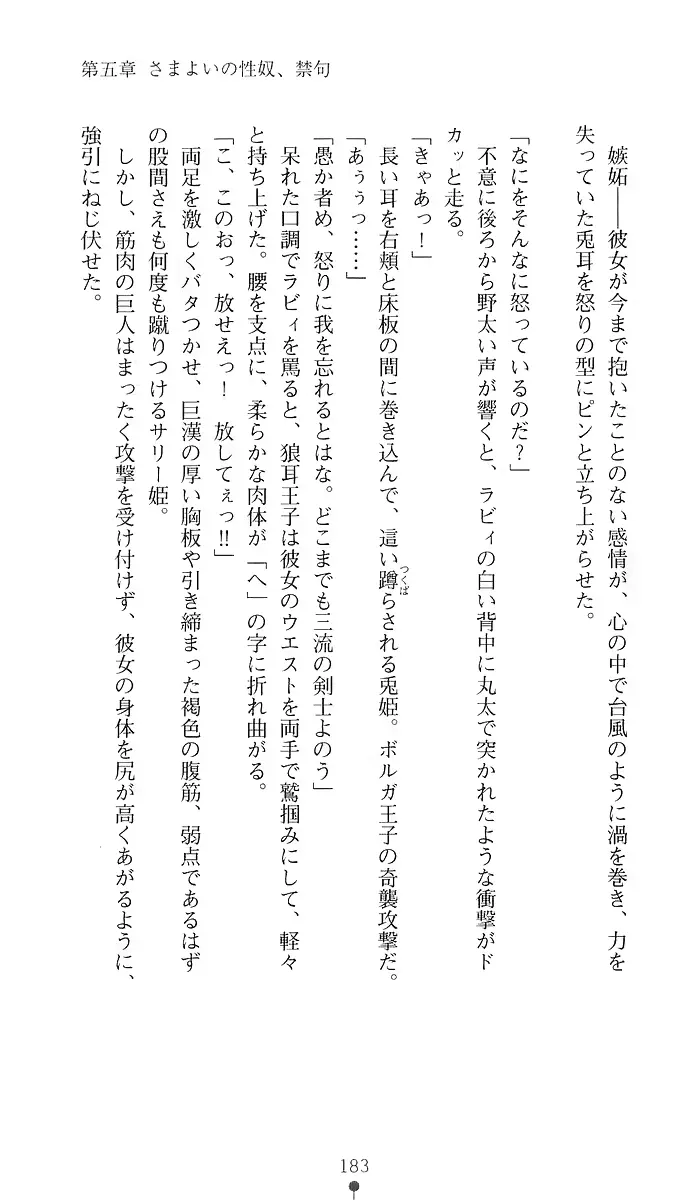 第五章 さまよいの性奴、禁句
嫉妬――彼女が今まで抱いたことのない感情が、心の中で台風のように渦を巻き、力を
失っていた兎耳を怒りの型にピンと立ち上がらせた。
「なにをそんなに怒っているのだ？」
不意に後ろから野太い声が響くと、ラビィの白い背中に丸太で突かれたような衝撃がド
カッと走る。
「きゃあっ！」
長い耳を右頬と床板の間に巻き込んで、這い蹲らされる兎姫。ボルガ王子の奇襲攻撃だ。
つくば
「あぅぅっ……」
「愚か者め、怒りに我を忘れるとはな。どこまでも三流の剣士よのう」
呆れた口調でラビィを罵ると、狼耳王子は彼女のウエストを両手で鷲掴みにして、軽々
と持ち上げた。腰を支点に、柔らかな肉体が「へ」の字に折れ曲がる。
「こ、このおっ、放せえっ！　放してぇっ!!」
両足を激しくバタつかせ、巨漢の厚い胸板や引き締まった褐色の腹筋、弱点であるはず
の股間さえも何度も蹴りつけるサリー姫。
しかし、筋肉の巨人はまったく攻撃を受け付けず、彼女の身体を尻が高くあがるように、
強引にねじ伏せた。
183